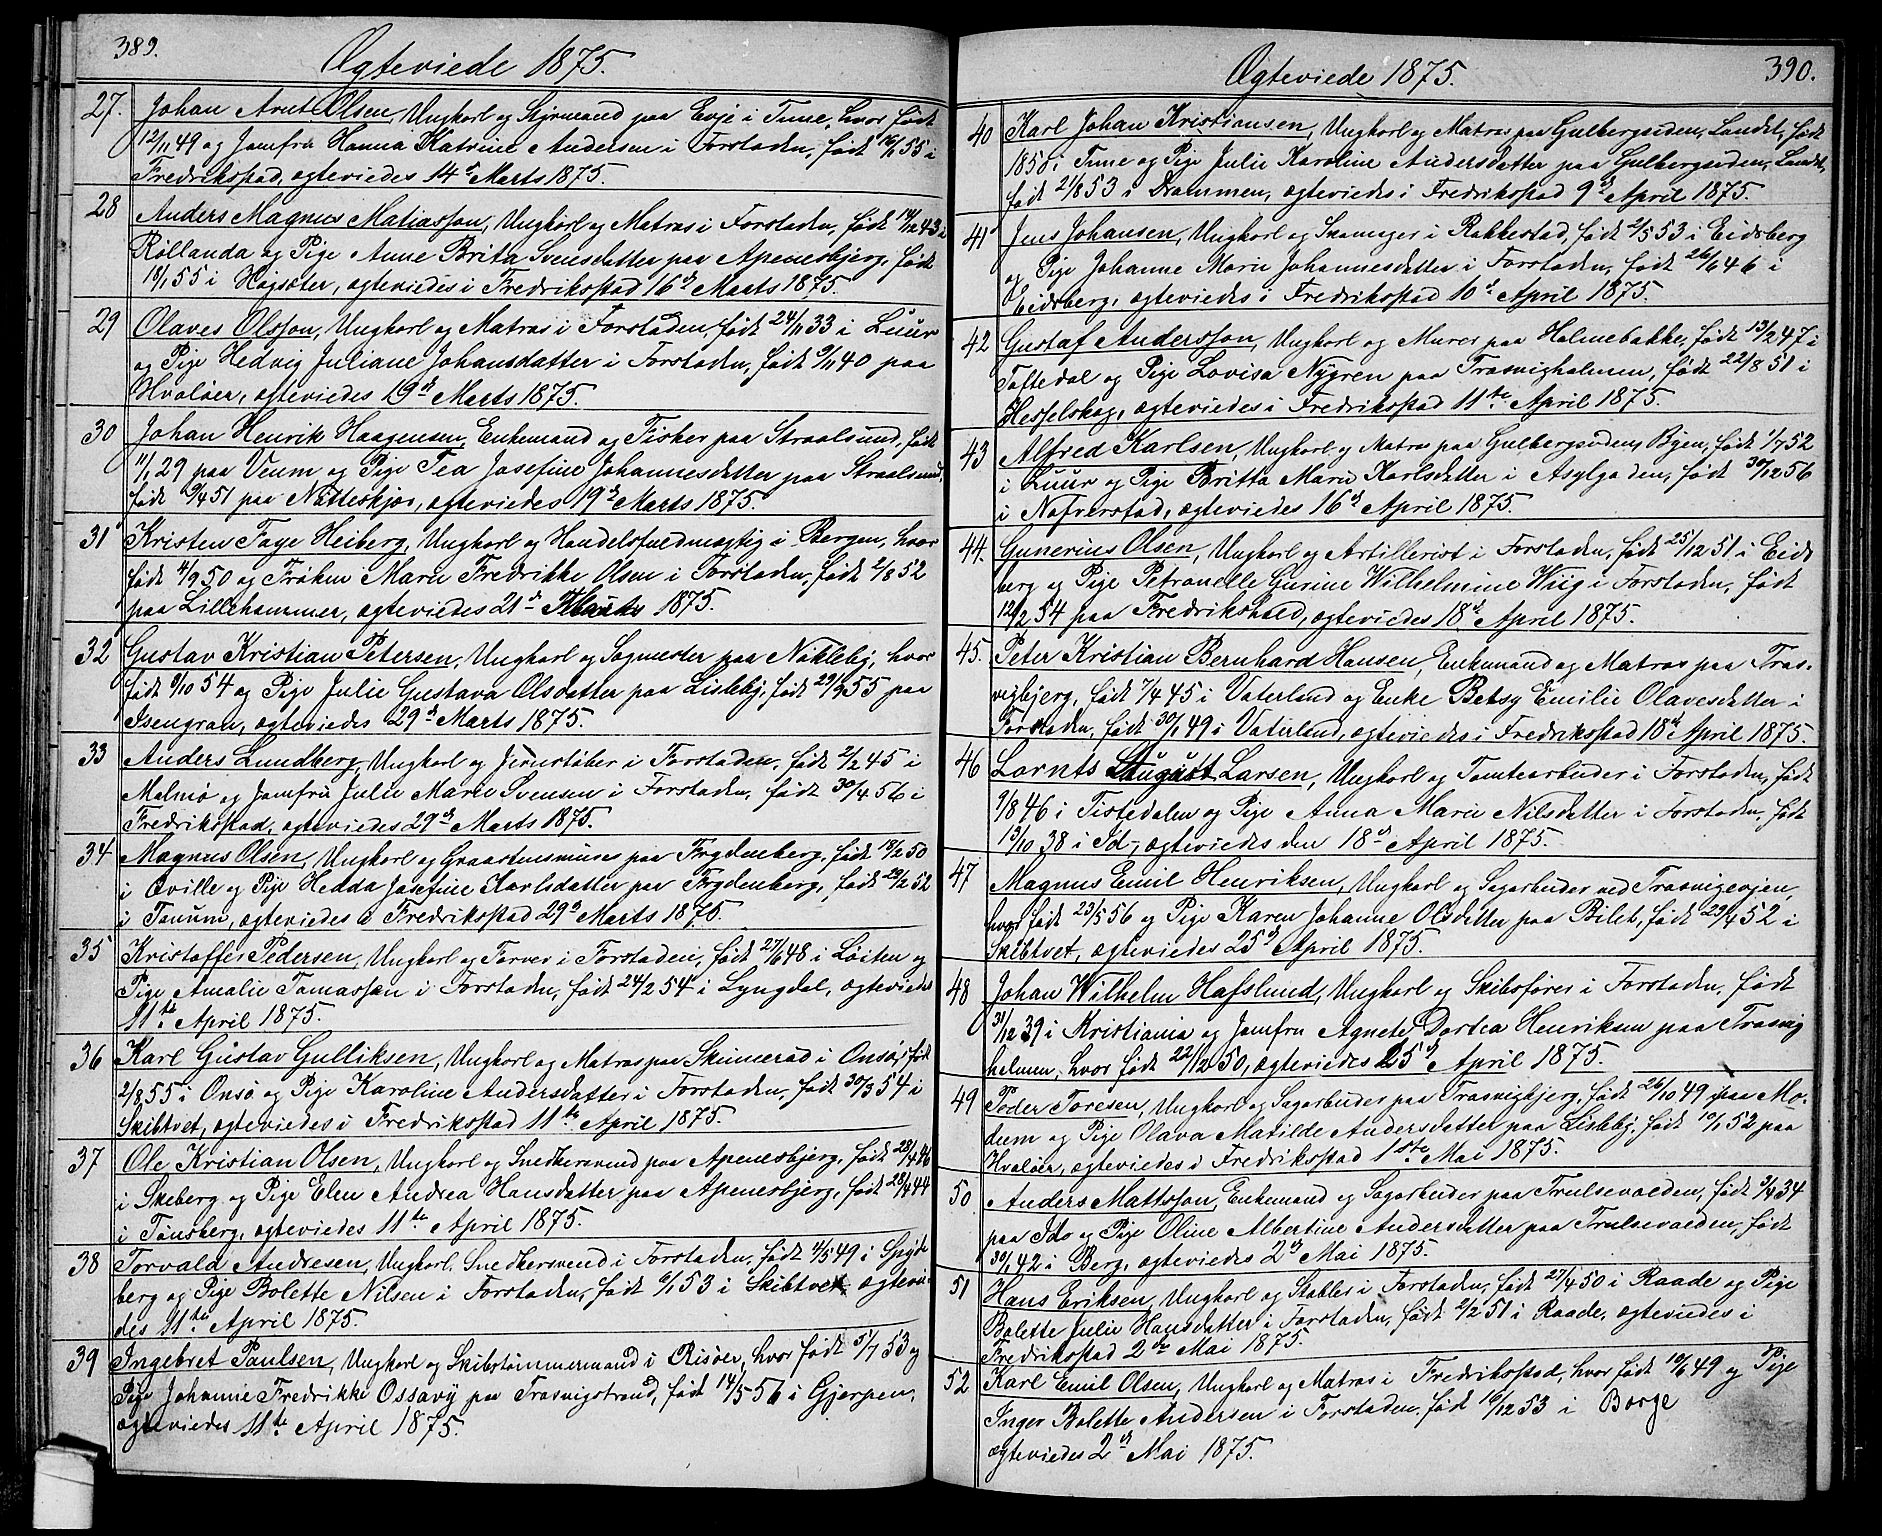 389.
Ægteviede 1875.
27. Johan Arnt Olsen, Ungkarl og Styrmand paa Evje i Tune, hvor født
12/11 49 og Jomfru Hanna Katrine Andersen i Forstaden, født 55 i
Fredrikstad, ægteviedes 14de Marts 1875.
28 Anders Magnus Matiasson, Ungkarl og Matros i Forstaden, født 14/12 43 i
Röllanda og Pige Anne Brita Svensdatter paa Apenesbjerg, født
18/1 55 i Högsäter, ægteviedes i Fredrikstad 16de Marts 1875.
29 Olaves Olsson, Ungkarl og Matros i Forstaden, født 24/11 33 i Luur
og Pige Hedvig Juliane Johansdatter i Forstaden, født 9/11 40 paa
Hvaløer, ægteviedes 19de Marts 1875.
30 Johan Henrik Haagensen, Enkemand og Fisker paa Straalsund, født
11/1 29 paa Veum og Pige Tea Josefine Johannesdatter paa Straalsund,
født 9/4 51 paa Natteskjær, ægteviedes 19de Marts 1875.
31 Kristen Faye Heiberg, Ungkarl og Handelsfuldmægtig i Bergen, hvor
født 4/9 50 og Frøken Marie Fredrikke Olsen i Forstaden, født 2/8 52
paa Lillehammer, ægteviedes 21de Marts 1875.
32 Gustav Kristian Petersen, Ungkarl og Sagmester paa Nökleby, hvor
født 9/10 54 og Pige Julie Gustava Olsdatter paa Lisleby, født 55 paa
Isengran, ægteviedes 29de Marts 1875.
33 Anders Lundberg, Ungkarl og Jernstøber i Forstaden, født 2/2 45 i
Malmö og Jomfru Julie Marie Svensen i Forstaden, født 30/4 56 i
Fredrikstad, ægteviedes 29de Marts 1875.
34 Magnus Olsen, Ungkarl og paa Frydenberg, født 18/2 50
i Qville og Pige Hedda Josefine Karlsdatter paa Frydenberg, født 29/2 52
i Tanum, ægteviedes i Fredrikstad 29de Marts 1875.
35 Kristoffer Pedersen, Ungkarl og Farver i Forstaden, født 27/6 48 i Löiten og
Pige Amalie Tomassen i Forstaden, født 24/2 54 i Lyngdal, ægteviedes
11te April 1875.
36 Karl Gustav Gulliksen, Ungkarl og Matros paa Skinnerød i Onsø, født
2/8 55 i Onsø og Pige Karoline Andersdatter i Forstaden, født 30/3 54 i
Skibtvet, ægteviedes i Fredrikstad 11te April 1875.
37 Ole Kristian Olsen, Ungkarl og Snedkersvend paa Apenesbjerg, født 28/4 46
i Skeberg og Pige Elen Andrea Hansdatter paa Apenesbjerg, født 28/4 44
i Tønsberg, ægteviedes 11te April 1875.
38 Torvald Andresen, Ungkarl, Snedkersvend i Forstaden, født 4/5 49 i Spyde
berg og Pige Bolette Nilsen i Forstaden, født 6/1 53 i Skibtvet ægtevie-
des 11te April 1875.
39 Ingebret Paulsen, Ungkarl og Skibstømmermand i Risøer, hvor født 5/7 53 og
Pige Johanne Fredrikke Ossavy paa Trosvigstrand, født 14/5 56 i Gjerpen,
ægteviedes 11te April 1875.
Ægteviede 1875.
390.
40 Karl Johan Kristiansen, Ungkarl og Matros paa Gulbergsiden, Landet, født
1850 i Tune og Pige Julie Karoline Andersdatter paa Gulbergsiden, Landet,
født 2/8 53 i Drammen, ægteviedes i Fredrikstad 9de April 1875.
41 Jens Johansen, Ungkarl og Svanger i Rakkestad, født 2/5 53 i Eidsberg
og Pige Johanne Marie Johannesdatter i Forstaden, født 26/6 46 i
Eidsberg, ægteviedes i Fredrikstad 10de April 1875.
42 Gustaf Andersson, Ungkarl og Murer paa Holmebakke, født 13/2 47 i
Töftedal og Pige Lovisa Nygren paa Trosvigholmen, født 22/8 51 i
Hesselskog, ægteviedes i Fredrikstad 11te April 1875.
43 Alfred Karlsen, Ungkarl og Matros paa Gulbergsiden, Byen, født 1/7 52
i Luur og Pige Britta Marie Karlsdatter i Asylgaden, født 30/12 56
i Nafverstad, ægteviedes 16de April 1875.
44. Gunerius Olsen, Ungkarl og Artillerist i Forstaden, født 25/12 51 i Eids
berg og Pige Petronelle Gurine Wilhelmine Wiig i Forstaden, født
12/2 54 paa Fredrikshald, ægteviedes 18de April 1875.
45. Peter Kristian Bernhard Hansen, Enkemand og Matros paa Tros-
vigbjerg, født 7/4 45 i Vaterland og Enke Betsy Emilie Olavesdatter i
Forstaden, født 30/1 49 i Vaterland, ægteviedes i Fredrikstad 18de April 1875.
46 Lornts August Larsen, Ungkarl og Tomtearbeider i Forstaden, født
9/8 46 i Tistedalen og Pige Anna Marie Nilsdatter i Forstaden, født
13/10 38 i Id, ægteviedes den 18de April 1875.
47 Magnus Emil Henriksen, Ungkarl og Sagarbeider ved Trosvigevjen,
hvor født 23/5 56 og Pige Karen Johanne Olsdatter paa Bilet, født 29/4 52 i
Skibtvet, ægteviedes 25de April 1875.
48 Johan Wilhelm Hafslund, Ungkarl og Skibsfører i Forstaden, født
31/12 39 i Kristiania og Jomfru Agnete Dortea Henriksen paa Trosvig
holmen, hvor født 22/12 50, ægteviedes 25de April 1875.
49 Peder Toresen, Ungkarl og Sagarbeider paa Trosvigbjerg, født 26/10 49 paa Mo-
dum og Pige Olava Matilde Andersdatter paa Lisleby, født 10/1 52 paa
Hvaløer, ægteviedes i Fredrikstad 1ste Mai 1875.
50. Anders Mattsson, Enkemand og Sagarbeider paa Trulsevolden, født 3/4 34
paa Ido og Pige Oline Albertine Andersdatter paa Trulsevolden, født
30/1 42 i Berg, ægteviedes 2de Mai 1875.
51 Hans Eriksen, Ungkarl og Stabler i Forstaden, født 27/4 50 i Raade og Pige
Bolette Julie Hansdatter i Forstaden, født 2/2 51 i Raade, ægteviedes i
Fredrikstad 2de Mai 1875.
52 Karl Emil Olsen, Ungkarl og Matros i Fredrikstad, hvor født 10/6 49 og Pige
Inger Bolette Andersen i Forstaden født 16/12 53 i Borge
ægteviedes 2de Mai 1875.